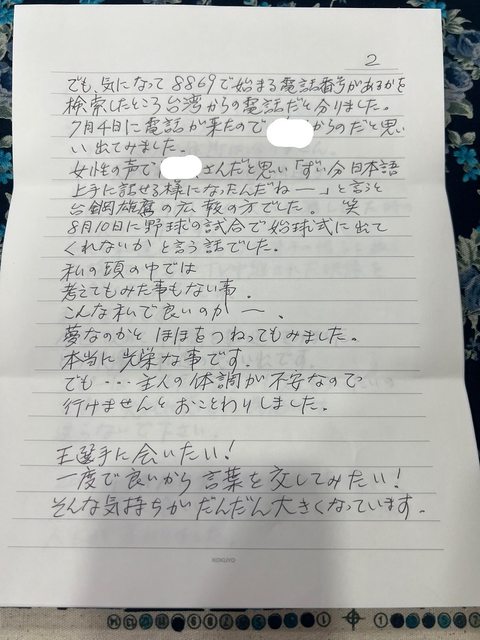 2
でも、気になって8869で始まる電話番号があるかを
検索したところ台湾からの電話だと分りました。
7月4日に電話が来たので からのだと思い
い出てみました。
女性の声で さんだと思い「ずい分日本語
上手に話せる様になったんだねー」と言うと
台鋼雄鷹の広報の方でした。 笑
8月10日に野球の試合で始球式に出て
くれないかと言う話でした。
私の頭の中では
考えてもみた事もない事。
こんな私で良いのかー。
夢なのかと ほほをつねってもみました。
本当に光栄な事です。
でも・・・主人の体調が不安なので
行けませんと おことわりしました。
王選手に会いたい!
一度で良いから 言葉を交してみたい!
そんな気持ちがだんだん大きくなっています。
KOKUYO